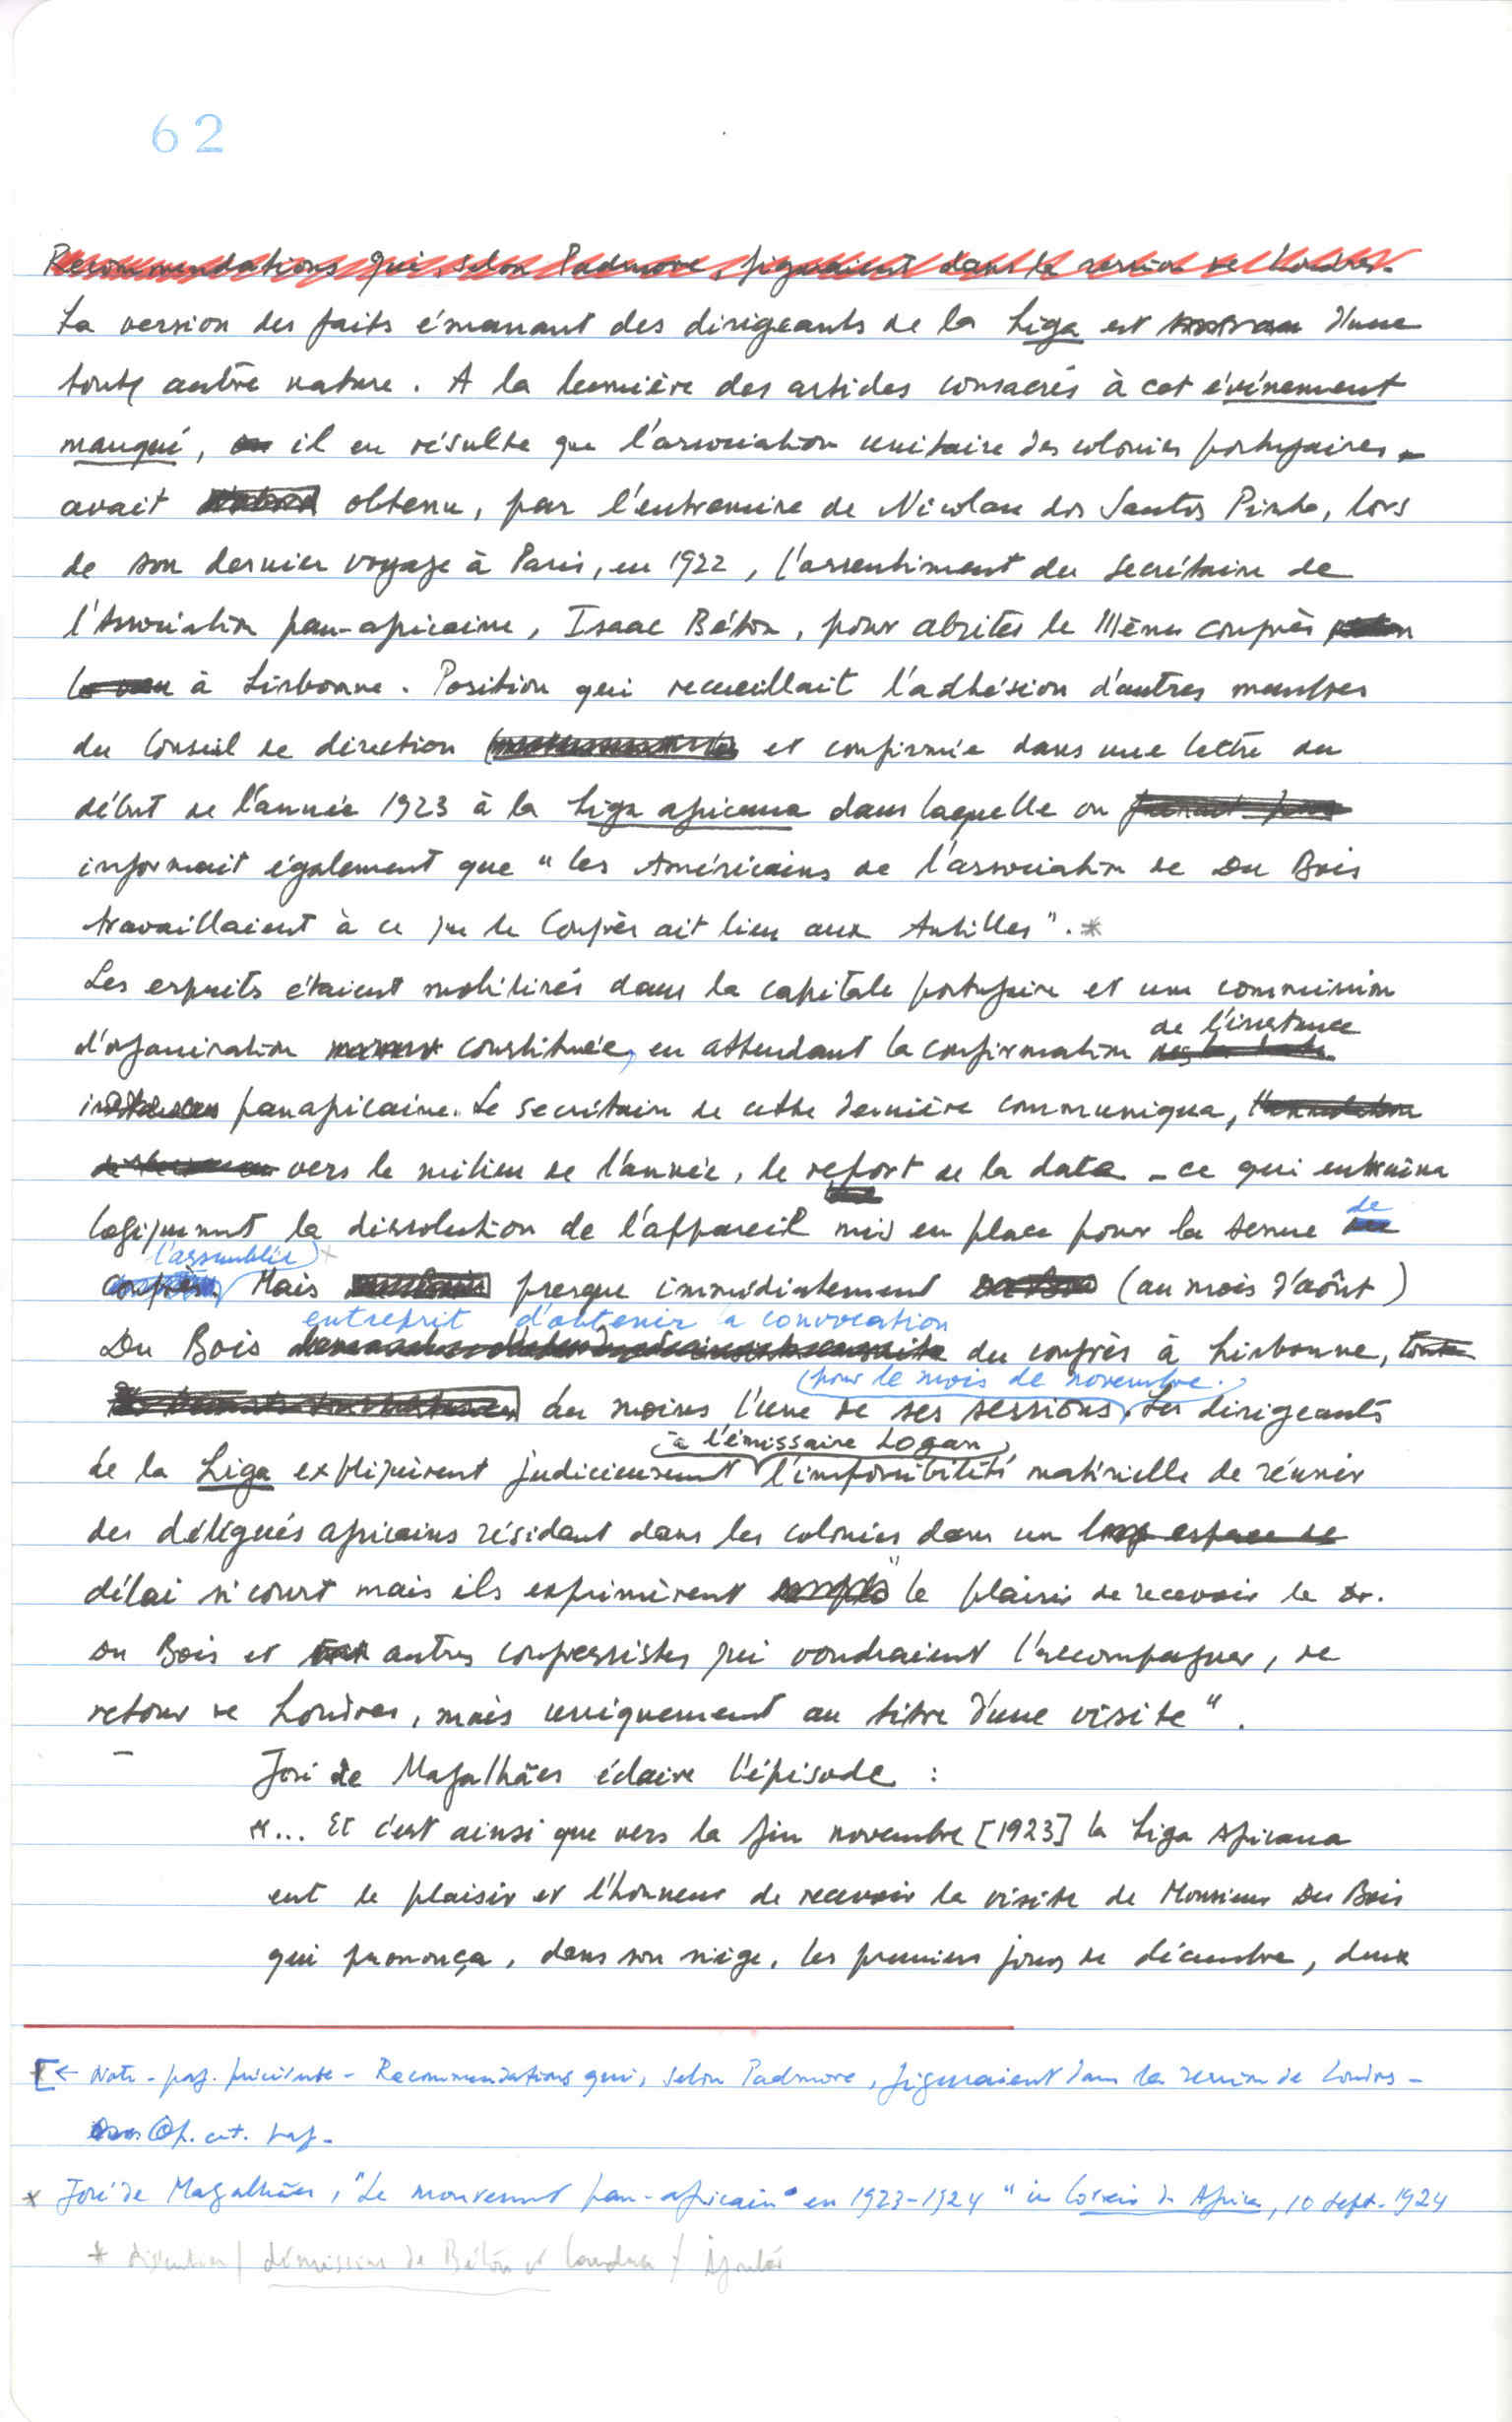 62
Recommendations qui, selon Padmore, figuraient dans la version de Londres.
La version des faits émanant des dirigeants de la Liga est d'une
toute autre nature. A la lumière des articles consacrés à cet événement
manqué, il en résulte que l'association unitaire des colonies portugaises
avait obtenu, par l'entremise de Nicolau dos Santos Pinto, lors
de son dernier voyage à Paris, en 1922, l'assentiment du secrétaire de
l'Association pan-africaine, Isaac Béton, pour abriter le IIIème congrès
à Lisbonne. Position qui recueillait l'adhésion d'autres membres
du Conseil de direction et confirmée dans une lettre du
début de l'année 1923 à la Liga africana dans laquelle on
informait également que "les Américains de l'association de Du Bois
travaillaient à ce que le Congrès ait lieu aux Antilles". *
Les esprits étaient mobilisés dans la capitale portugaise et une commission
de l'instance
d'organisation constituée, en attendant la confirmation
panafricaine. Le secrétaire de cette dernière communiqua,
vers le milieu de l'année, le report de la date - ce qui entraîna
logiquement la dissolution de l'appareil mis en place pour la tenue de
l'assemblée
congrès. Mais presque immédiatement (au mois d'août)
entreprit d'obtenir la convocation
Du Bois du congrès à Lisbonne,
(pour le mois de novembre.)
du moins l'une de ses sessions. Les dirigeants
(à l'émissaire Logan)
de la Liga expliquèrent judicieusement l'impossibilité matérielle de réunir
des délégués africains résidant dans les colonies dans un long espace de
délai si court mais ils exprimèrent "le plaisir de recevoir le Dr.
Du Bois et autres congressistes qui voudraient l'accompagner, de
retour de Londres, mais uniquement au titre d'une visite".
José de Magalhães éclaire l'épisode :
"... Et c'est ainsi que vers la fin novembre [1923] la Liga Africana
eut le plaisir et l'honneur de recevoir la visite de Monsieur Du Bois
qui prononça, dans son siège, les premiers jours de décembre, deux
[← Note - pag. précédente - Recommendations qui, selon Padmore, figuraient dans la version de Londres -
Op. cit. pag.
* José de Magalhães, "Le mouvement pan-africain en 1923-1924" in Correio de Africa, 10 sept. 1924
* démission de Béton et / Ajouter